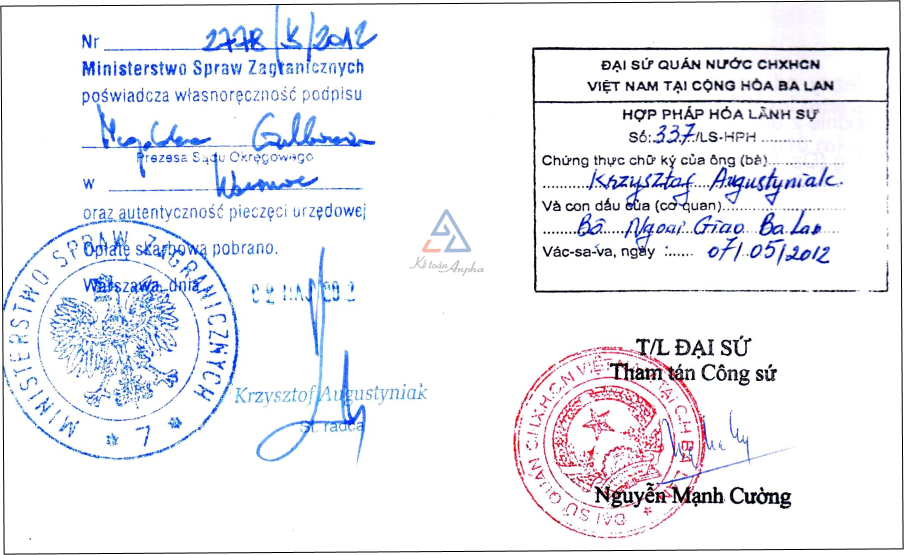 Nr 2778/K/2012
Ministerstwo Spraw Zagranicznych
poświadcza własnoręczność podpisu
Prezesa Sądu Okręgowego
w
oraz autentyczność pieczęci urzędowej
Opłatę skarbową pobrano.
Warszawa, dnia
MINISTERSTWO SPRAW ZAGRANICZNYCH
* 7 *
Krzysztof Augustyniak
St. radca
Kế toán Anpha
ĐẠI SỨ QUÁN NƯỚC CHXHCN
VIỆT NAM TẠI CỘNG HÒA BA LAN
HỢP PHÁP HÓA LÃNH SỰ
Số: 337/LS-HPH
Chứng thực chữ ký của ông (bà)
Krzysztof Augustyniak.
Và con dấu của (cơ quan)
Bộ Ngoại Giao Ba Lan
Vác-sa-va, ngày : 07/05/2012
T/L ĐẠI SỨ
Tham tán Công sứ
ĐẠI SỨ QUÁN CHXHCN VIỆT NAM TẠI C.H BA LAN
Nguyễn Mạnh Cường